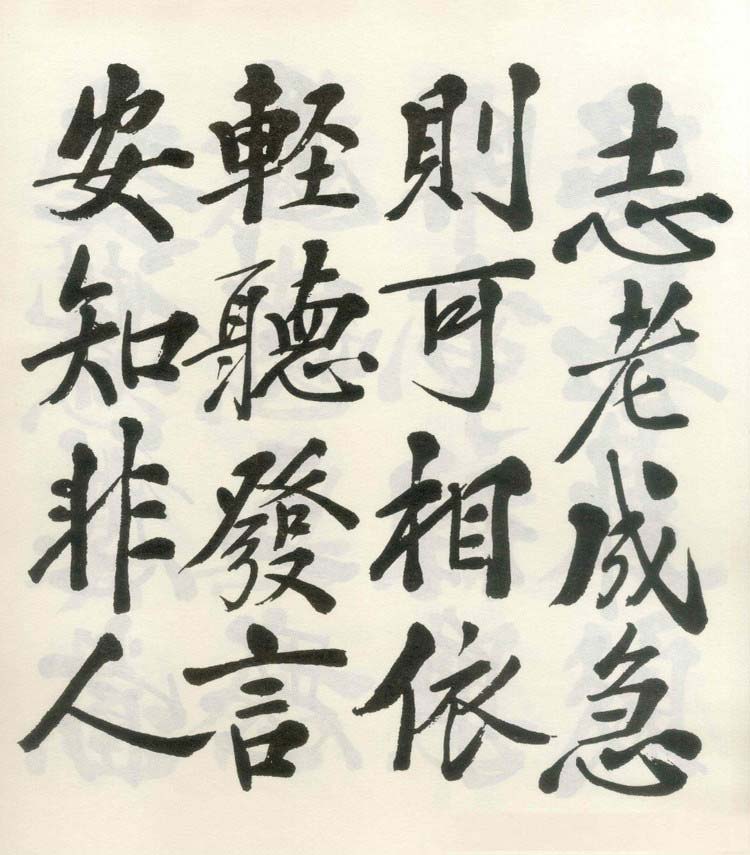 志老成急
則可相依
軽聽發言
安知非人